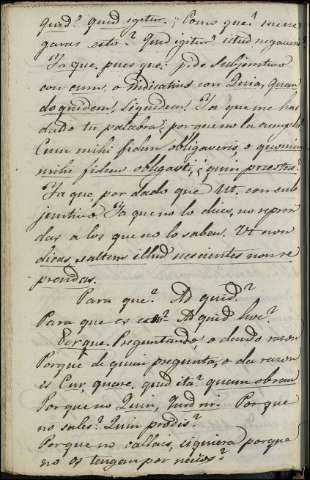 quid? quid igitur? ¿Pues que?
garas esto? Quid igitur? istud negaveris
Ya que, pues que: pide Subjuntivo
con cum, o Indicativo con Quia, Quan
doquidem, siquidem. Ya que me has
dado tu palabra, porque no la cumples
Cum mihi fidem obligaveris, o quoniam
mihi fidem obligasti, quin praestas?
Ya que por dado que Ut, con sub
juntivo. Ya que no lo dices, no repren
das a los que no lo saben. Ut non
dicas, saltem illud nescientes non re
prendas.
Para que? Ad quid?
Para que es esto? Ad quid hoc?
Porque. Preguntando o dando razon
Porque de quien pregunta, o da razon
es Cur, quare, quid ita? quam obrem
Porque no Quin, Quid ni. Porque
no sales? Quin prodis?
Porque no callais, siquiera porque
no os tengan por necios?